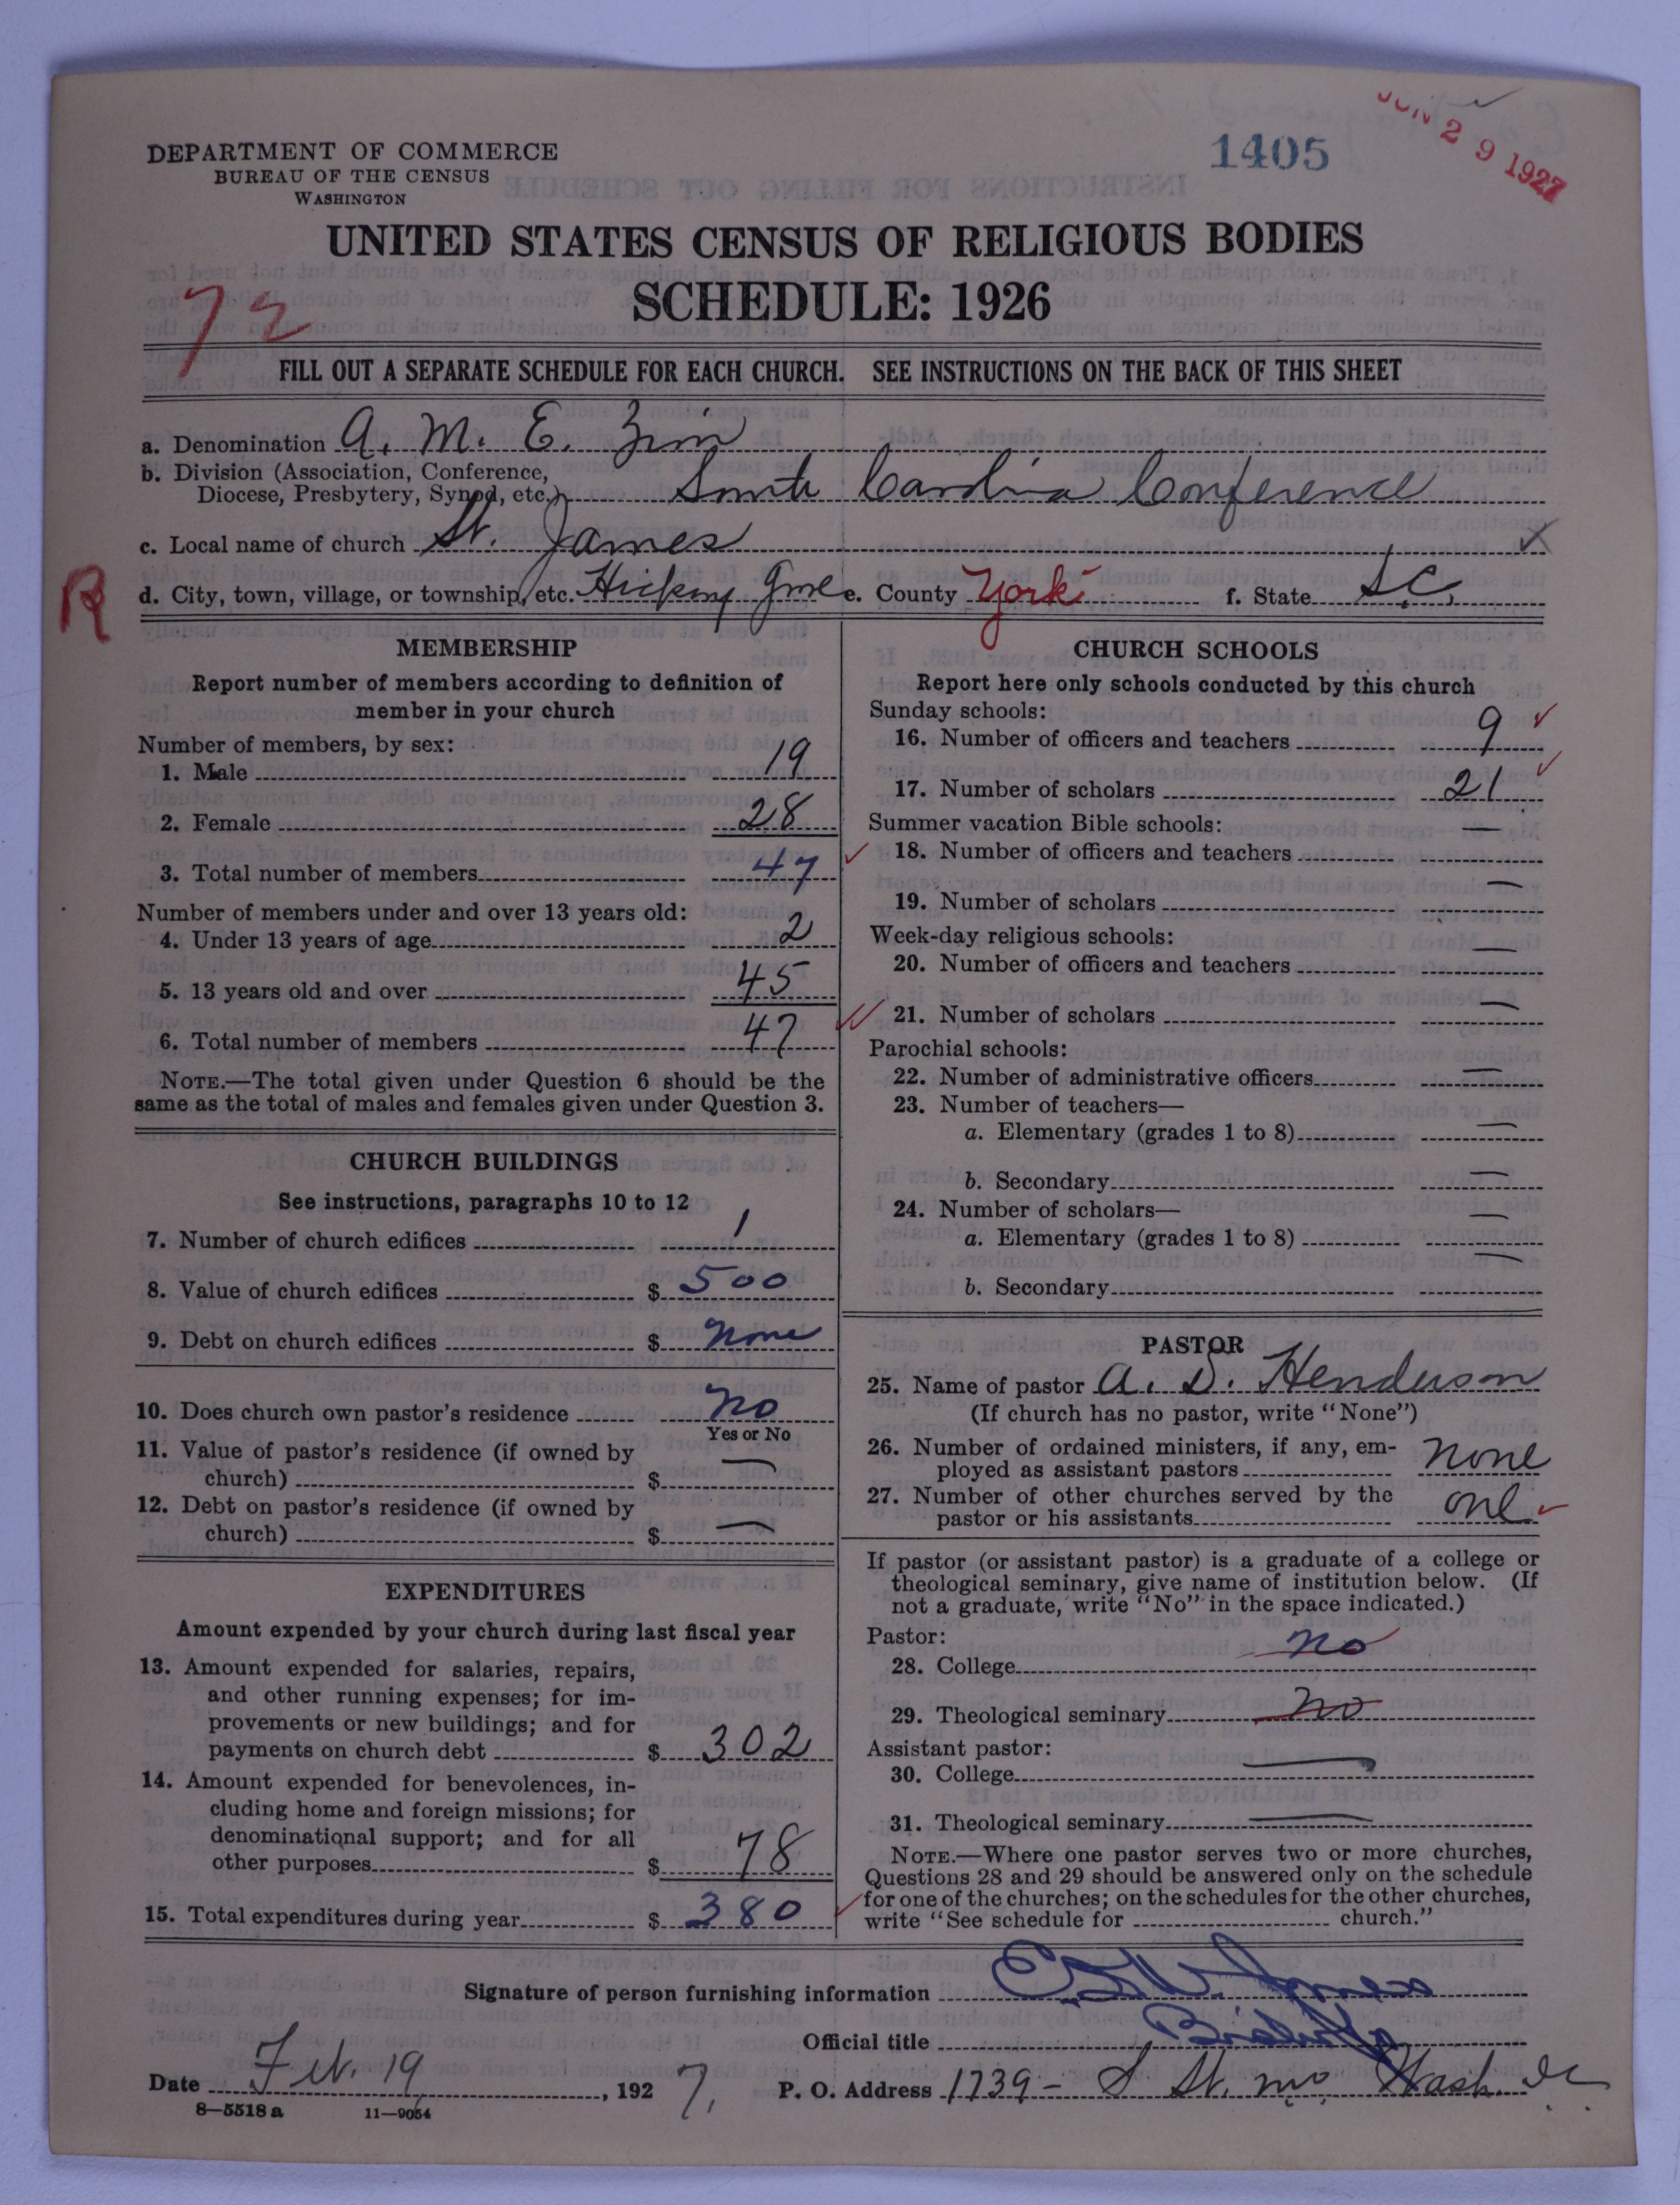 JUN 29 1927
1405
DEPARTMENT OF COMMERCE
BUREAU OF THE CENSUS
WASHINGTON
UNITED STATES CENSUS OF RELIGIOUS BODIES
SCHEDULE: 1926
72
FILL OUT A SEPARATE SCHEDULE FOR EACH CHURCH. SEE INSTRUCTIONS ON THE BACK OF THIS SHEET
a. Denomination A. M. E. Zion
b. Division (Association, Conference,
Diocese, Presbytery, Synod, etc.) South Carolina Conference
c. Local name of church St. James
R
d. City, town, village, or township, etc. Hickory Grove e. County York f. State S.C.
MEMBERSHIP
Report number of members according to definition of
member in your church
Number of members, by sex:
1. Male 19
2. Female 28
3. Total number of members 47
Number of members under and over 13 years old:
4. Under 13 years of age 2
5. 13 years old and over 45
6. Total number of members 47
NOTE.—The total given under Question 6 should be the
same as the total of males and females given under Question 3.
CHURCH BUILDINGS
See instructions, paragraphs 10 to 12
7. Number of church edifices 1
8. Value of church edifices $ 500
9. Debt on church edifices $ None
10. Does church own pastor's residence No
Yes or No
11. Value of pastor's residence (if owned by
church) $ —
12. Debt on pastor's residence (if owned by
church) $ —
EXPENDITURES
Amount expended by your church during last fiscal year
13. Amount expended for salaries, repairs,
and other running expenses; for im-
provements or new buildings; and for
payments on church debt $ 302
14. Amount expended for benevolences, in-
cluding home and foreign missions; for
denominational support; and for all
other purposes $ 78
15. Total expenditures during year $ 380
CHURCH SCHOOLS
Report here only schools conducted by this church
Sunday schools:
16. Number of officers and teachers 9
17. Number of scholars 21
Summer vacation Bible schools:
18. Number of officers and teachers —
19. Number of scholars —
Week-day religious schools:
20. Number of officers and teachers —
21. Number of scholars —
Parochial schools:
22. Number of administrative officers —
23. Number of teachers—
a. Elementary (grades 1 to 8) —
b. Secondary —
24. Number of scholars—
a. Elementary (grades 1 to 8) —
b. Secondary —
PASTOR
25. Name of pastor A. D. Henderson
(If church has no pastor, write "None")
26. Number of ordained ministers, if any, em-
ployed as assistant pastors None
27. Number of other churches served by the
pastor or his assistants one
If pastor (or assistant pastor) is a graduate of a college or
theological seminary, give name of institution below. (If
not a graduate, write "No" in the space indicated.)
Pastor:
28. College No
29. Theological seminary No
Assistant pastor:
30. College —
31. Theological seminary —
NOTE.—Where one pastor serves two or more churches,
Questions 28 and 29 should be answered only on the schedule
for one of the churches; on the schedules for the other churches,
write "See schedule for church."
Signature of person furnishing information Jones
Official title Bishop
Date Feb. 19, 1927, P. O. Address 1739 - S St. NW Wash. DC
8—5518a 11—9054